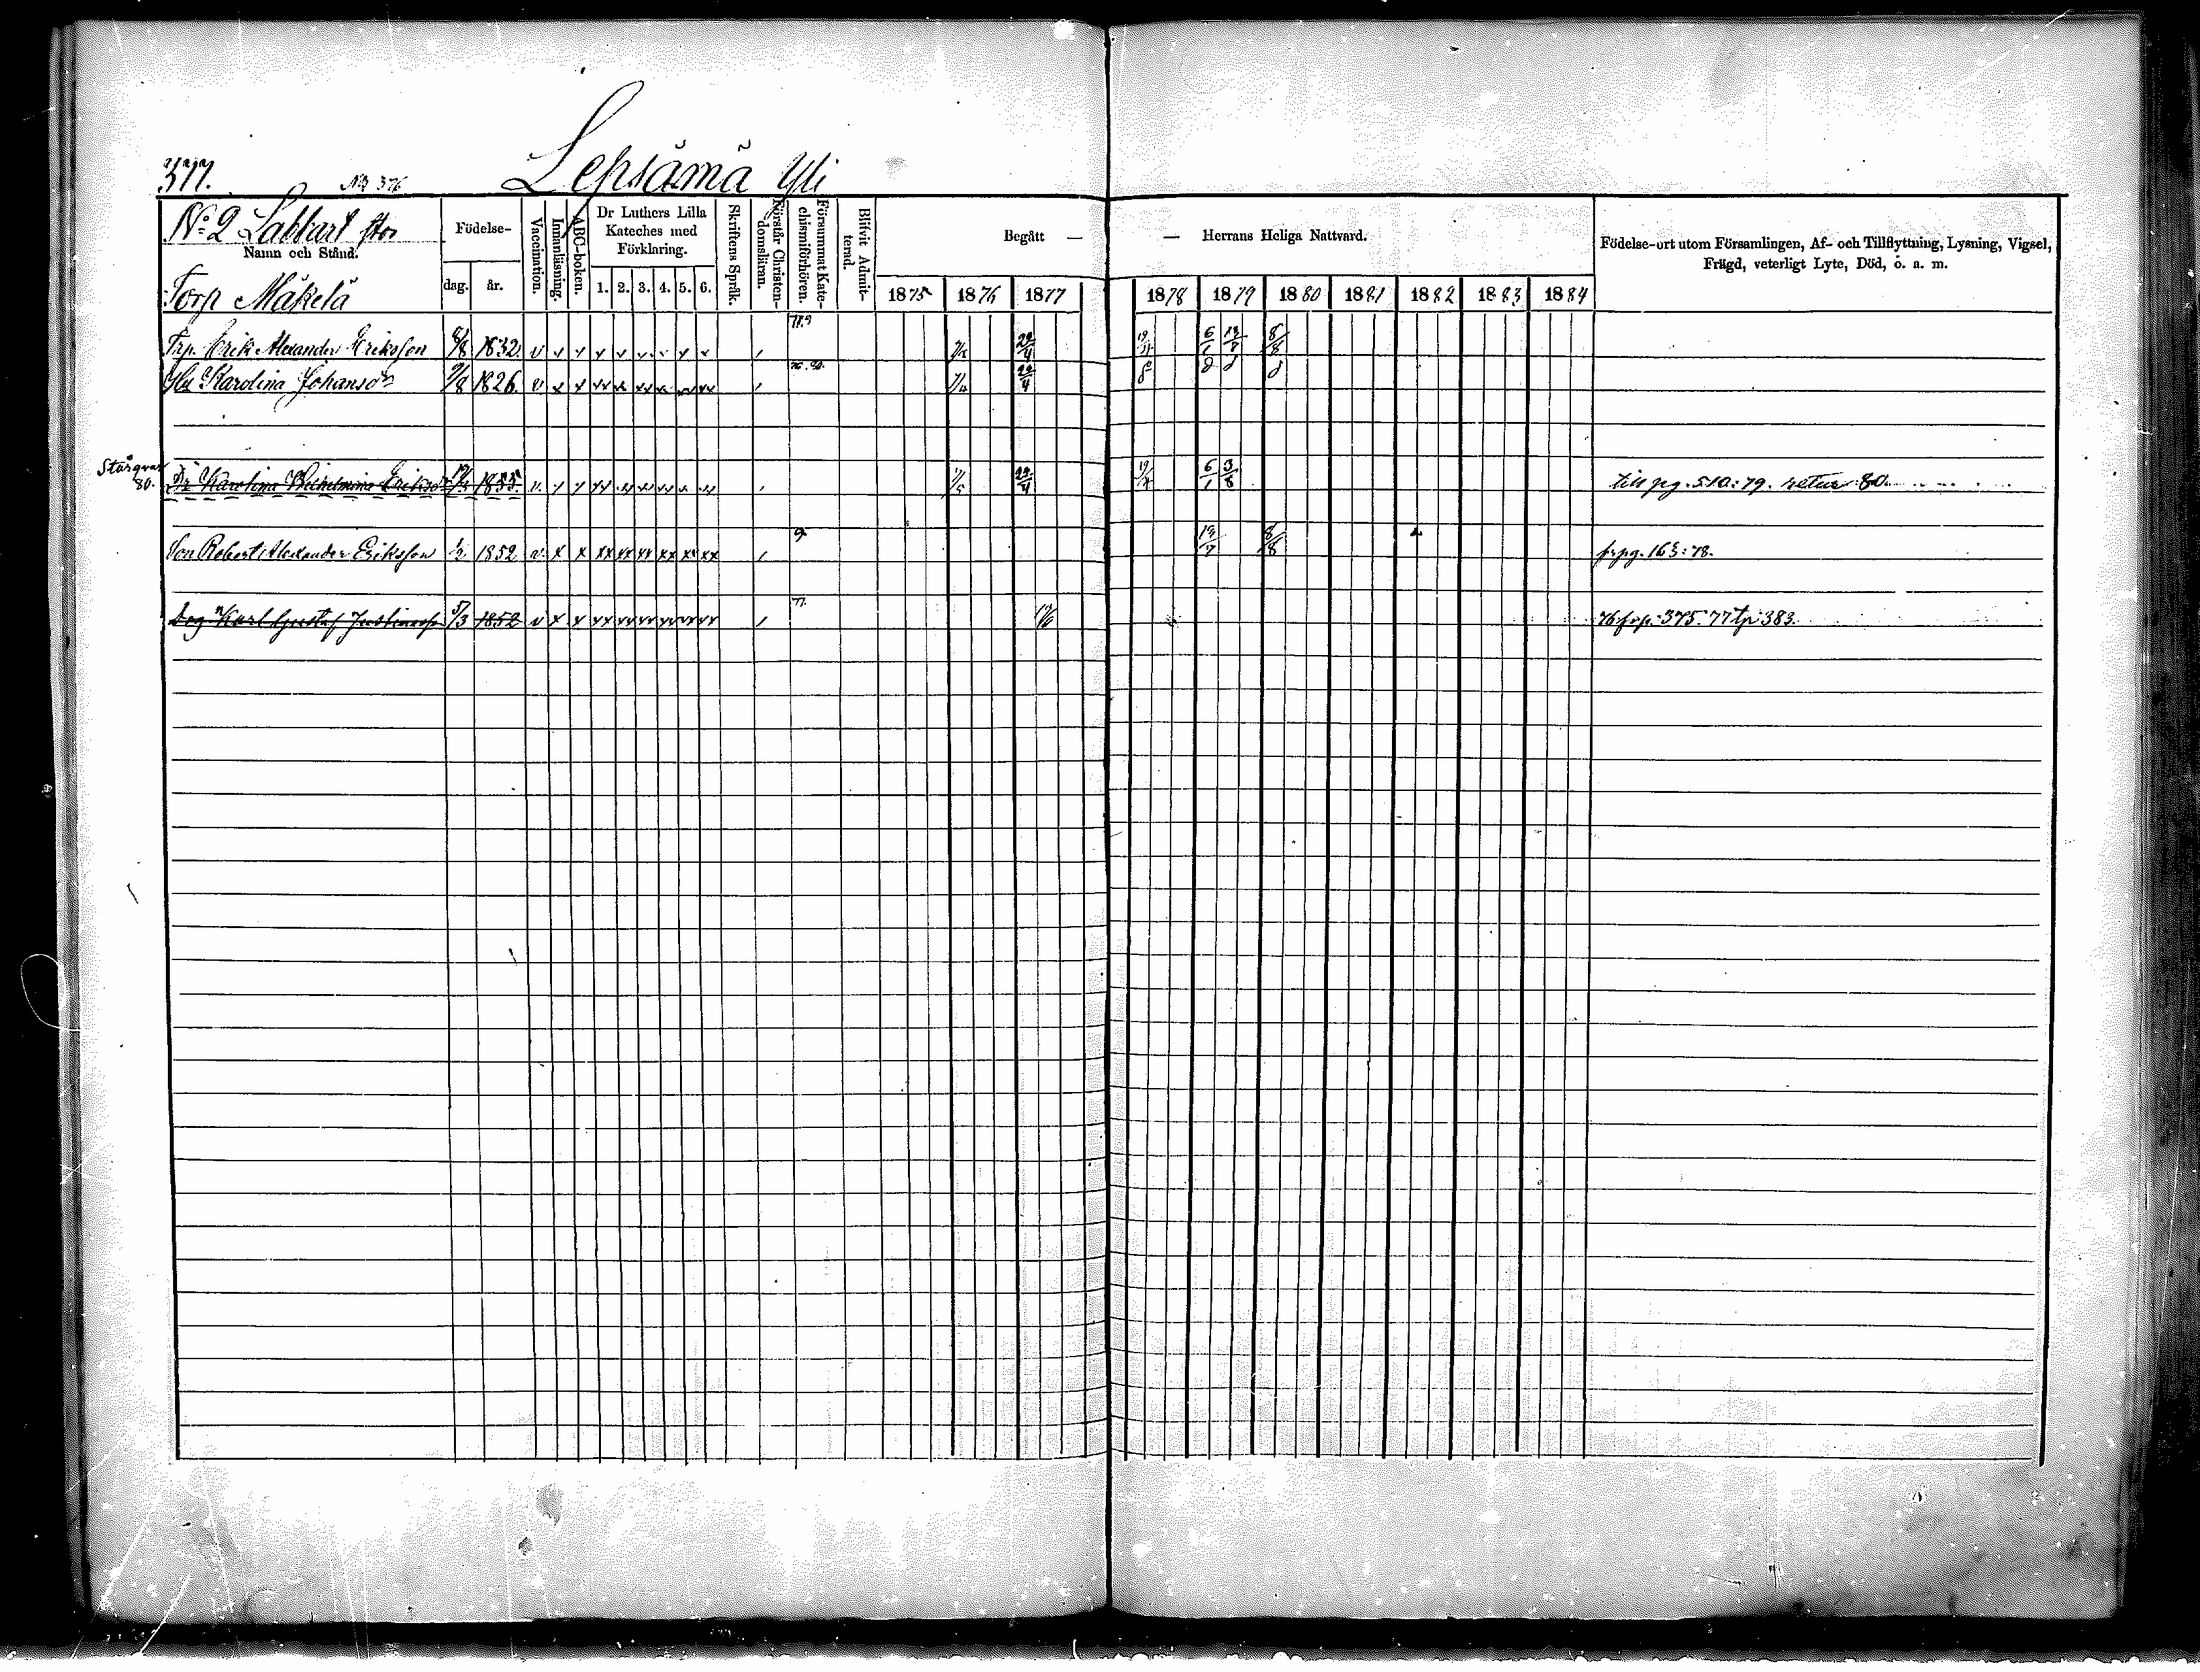 377. No 376 Lepsämä Yli
No 2 Labbart stor
Namn och Stånd.
Torp Mäkelä
Födelse-
dag. år.
Vaccination.
Innanläsning.
ABC-boken.
Dr Luthers Lilla
Kateches med
Förklaring.
1. 2. 3. 4. 5. 6.
Skriftens Språk.
Förstår Christen-
domsläran.
Försummat Kate-
chismiförhören.
Blifvit Admit-
terad.
Begått —
— Herrans Heliga Nattvard.
1875 1876 1877 1878 1879 1880 1881 1882 1883 1884
Födelse-ort utom Församlingen, Af- och Tillflyttning, Lysning, Vigsel,
Frägd, veterligt Lyte, Död, o. a. m.
Trp. Erik Alexander Eriksson 1832 v 22/4 6/1 8/8
Hu Karolina Johansdr 9/8 1826 v 22/4
Står qvar
80.
Dr Karolina Wilhelmina Eriksdr 1855 v 22/4 6/1 3/8 till pg. 510: 79. retur 80.
Son Robert Alexander Eriksson 1/2 1852 v x x xx xx xx xx xx xx 9. 8/8 frpg. 163: 78.
Drg Karl Gustaf Justinusso 1852 v x x xx xx xx xx xx xx 77. 76 frp. 375. 77 tp 383.